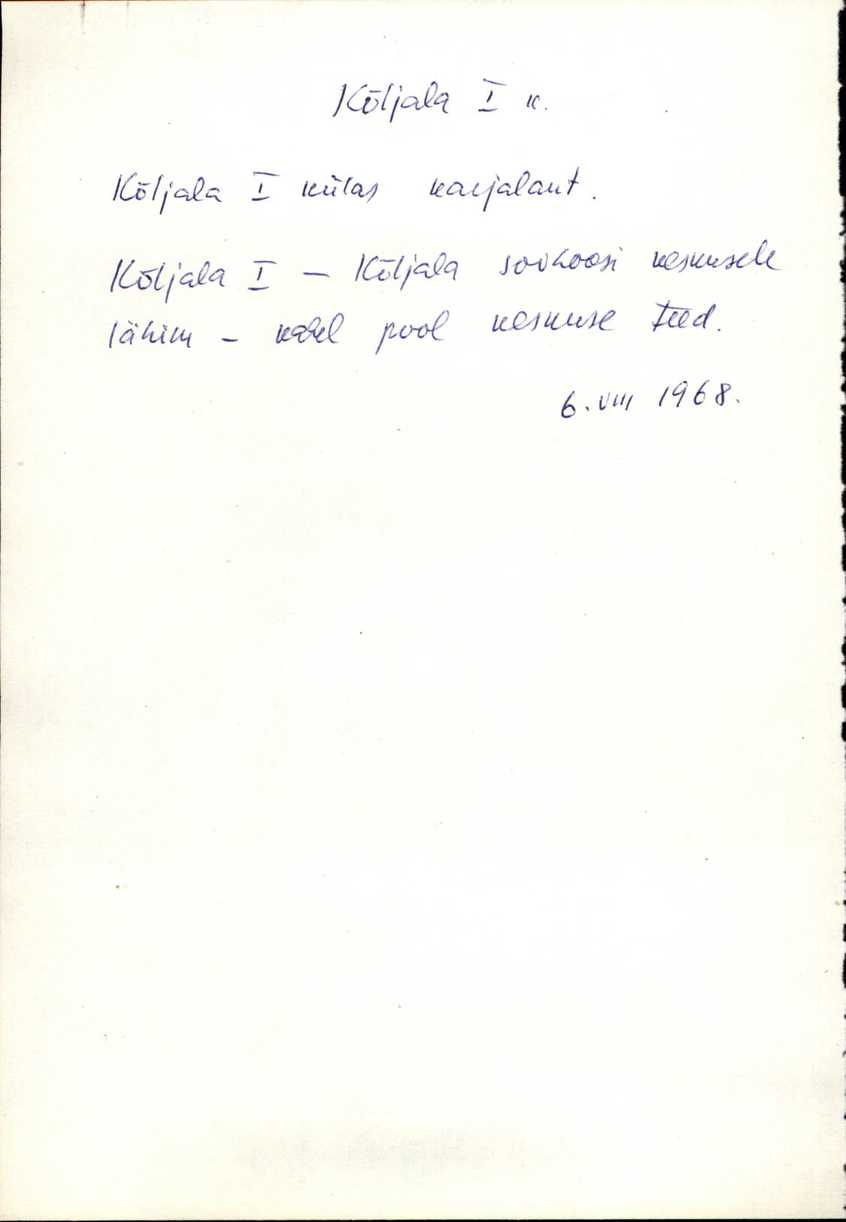 Kõljala I k.
Kõljala I külas karjalaut.
Kõljala I – Kõljala sovhoosi keskusele
lähim – kahel pool keskuse teed.
6. VIII 1968.